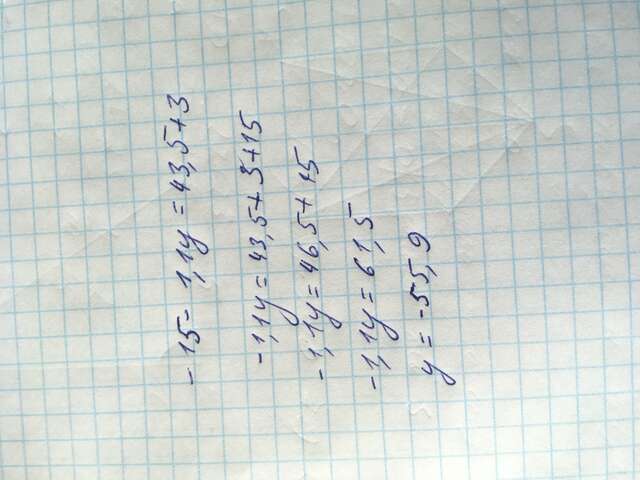 -15-1,1y=43,5+3
-1,1y=43,5+3+15
-1,1y=46,5+15
-1,1y=61,5
y=-55,9